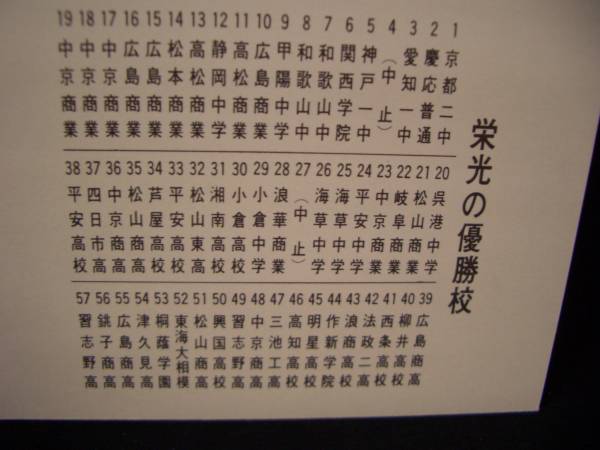 栄光の優勝校
1 京都二中
2 慶応普通
3 愛知一中
4 (中止)
5 神戸一中
6 関西学院
7 和歌山中
8 和歌山中
9 甲陽中学
10 広島商業
11 高松商業
12 静岡中学
13 高松商業
14 松本商業
15 広島商業
16 広島商業
17 中京商業
18 中京商業
19 中京商業
20 呉港中学
21 松山商業
22 岐阜商業
23 中京商業
24 平安中学
25 海草中学
26 海草中学
27 (中止)
28 浪華商業
29 小倉中学
30 小倉高校
31 湘南高校
32 松山東高
33 平安高校
34 芦屋高校
35 松山商高
36 中京商高
37 四日市高
38 平安高校
39 広島商高
40 柳井高校
41 西条高校
42 法政二高
43 浪商高校
44 作新学院
45 明星高校
46 高知高校
47 三池工高
48 中京商高
49 習志野高
50 興国高校
51 松山商高
52 東海大相模
53 桐蔭学園
54 津久見高
55 広島商高
56 銚子商高
57 習志野高